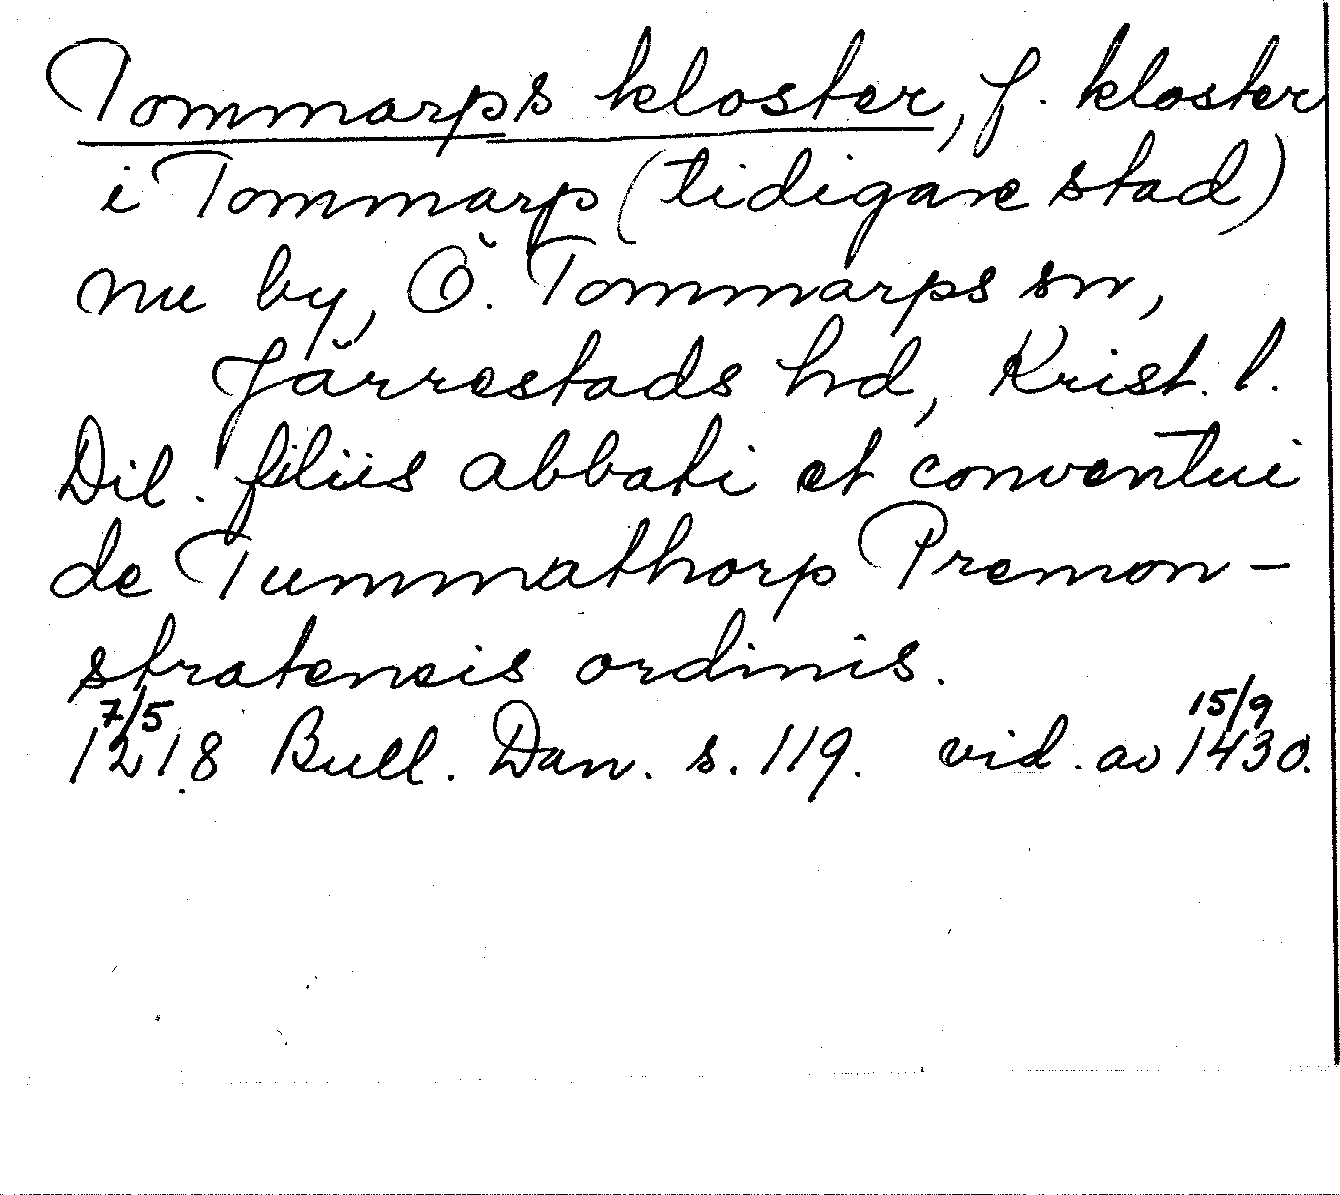 Tommarps kloster, f. kloster
i Tommarp (tidigare stad)
nu by, Ö. Tommarps sn,
Järrestads hd, Krist. l.
Dil. filiis abbati et conventui
de Tummathorp Premon-
stratencis ordinis.
7/5 15/9
1218 Bull. Dan. s. 119. vid. av 1430.